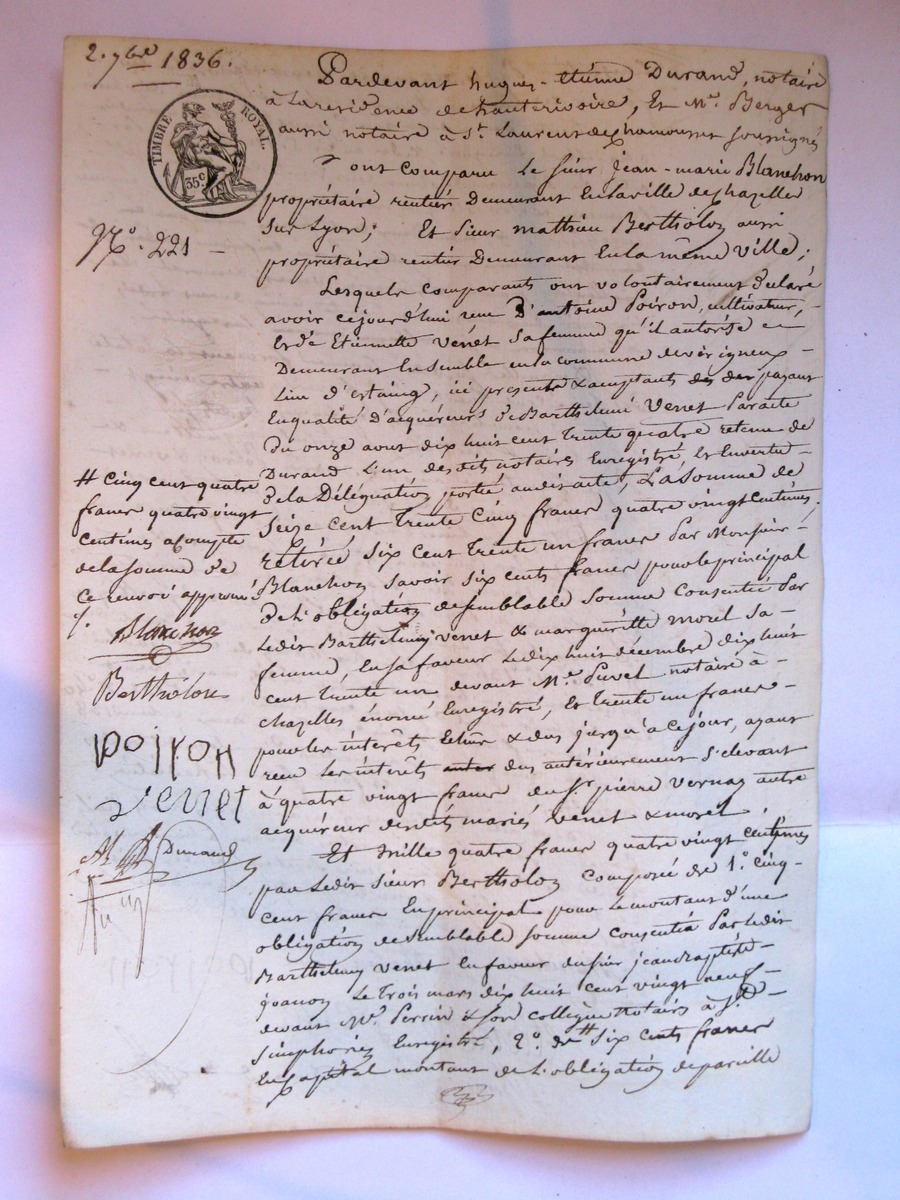 2. 7bre 1836.
TIMBRE ROYAL.
35c
No. 221 -
Pardevant hugues-etiénne Durand, notaire
à La residence de hauterivoire, Et Me. Berger
aussi notaire à St. Laurent de chamousset soussignés
ont comparu Le sieur jean-marie Blanchon
propriétaire rentier Demeurant En la ville de chazelles
sur Lyon; Et Sieur mathieu Bertholon aussi
propriétaire rentier Demeurant En la même ville;
Lesquels comparants ont volontairement déclaré
avoir cejourd'hui reçu D'antoine Poiron, cultivateur, -
Et de Etiennette Venet sa femme qu'il autorise
Demeurant Ensemble en la commune de virigneux -
Lieu d'Estaing, ici présents & acceptants des payant
En qualité d'acquéreurs de Barthelemi Venet Par acte
du onze aout dix huit cent trente quatre retenu de
Durand L'un desdits notaires Enregistré, Et En vertu -
de la Délégation portée audit acte, La somme de
seize cent trente cinq francs quatre vingt centimes,
retirée six cent trente un francs Par Monsieur -
Blanchon savoir six cents francs pour le principal
de L'obligation de semblable somme consentie Par
Ledit Barthelemy Venet & marguéritte morel sa -
femme, En sa faveur Le dix huit décembre dix huit
cent trente un devant Me. Puvel notaire à -
chazelles énoncé Enregistré, Et trente un francs -
pour les intérêts Echus & dus jusqu'à ce jour, ayant
reçu Les intérêts dus antérieurement s'elevant
à quatre vingt francs du Sr. pierre Vernay autre
acquéreur desdits mariés Venet & morel.
Et Mille quatre francs quatre vingt centimes
par Ledit sieur Bertholon composé de 1°. cinq -
cent francs En principal pour Le montant d'une
obligation de semblable somme consentie Par Ledit
Barthelemy Venet En faveur du sieur jean baptiste -
joanon Le trois mars dix huit cent vingt neuf -
devant Me. Perrin & son collègue notaires à St. -
simphorien Enregistré, 2°. de # six cents francs
En capital montant de L'obligation de pareille
# cinq cent quatre
francs quatre vingt
centimes à compte
de la somme de
ce renvoi approuvé
Blanchon
Bertholon
poiron
venet
Durand